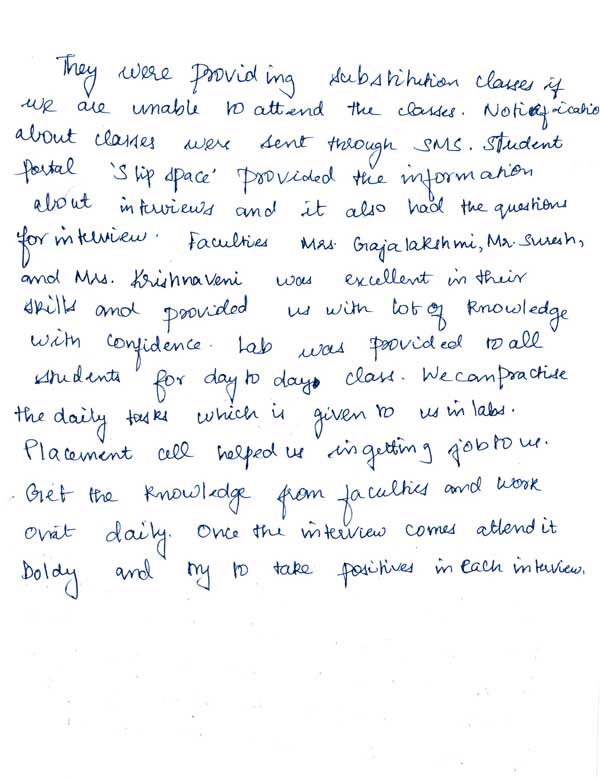 They were providing substitution classes if
we are unable to attend the classes. Notification
about classes were sent through SMS. Student
portal 'Slip space' provided the information
about interviews and it also had the questions
for interview. Faculties Mrs. Gajalakshmi, Mr. Suresh,
and Mrs. Krishnaveni was excellent in their
skills and provided us with lot of knowledge
with confidence. Lab was provided to all
students for day to day class. We can practise
the daily tasks which is given to us in labs.
Placement cell helped us in getting job to us.
Get the knowledge from faculties and work
on it daily. Once the interview comes attend it
Boldy and try to take positives in each interview.